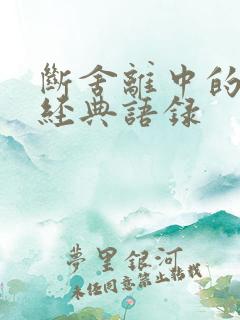 斷舍離中的
經典語録
夢里銀河
未经同意禁止转载